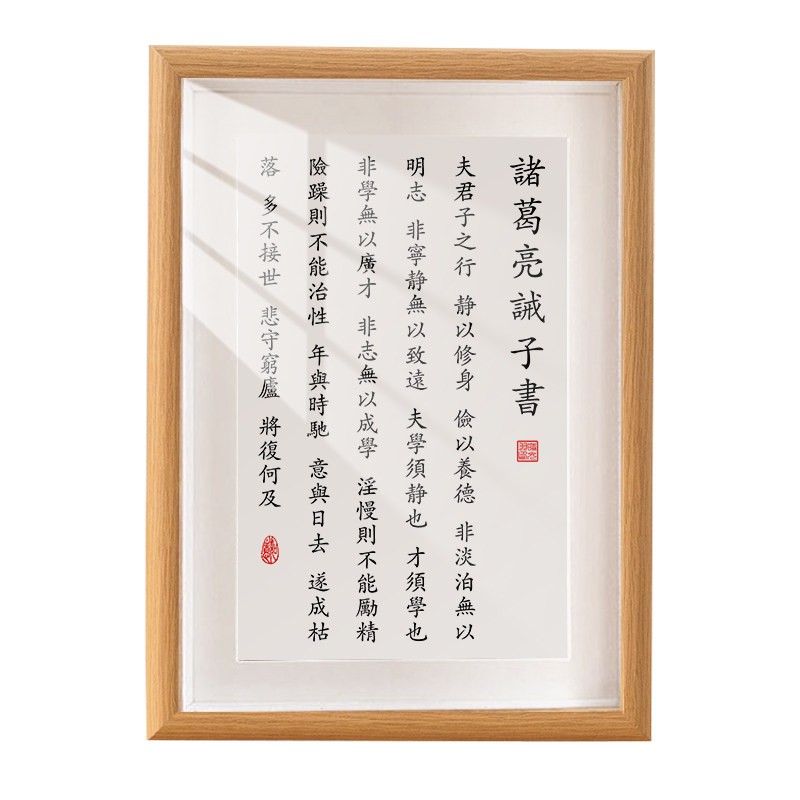 諸葛亮誡子書
夫君子之行 静以修身 儉以養德 非淡泊無以
明志 非寧静無以致遠 夫學須静也 才須學也
非學無以廣才 非志無以成學 淫慢則不能勵精
險躁則不能治性 年與時馳 意與日去 遂成枯
落 多不接世 悲守窮廬 將復何及